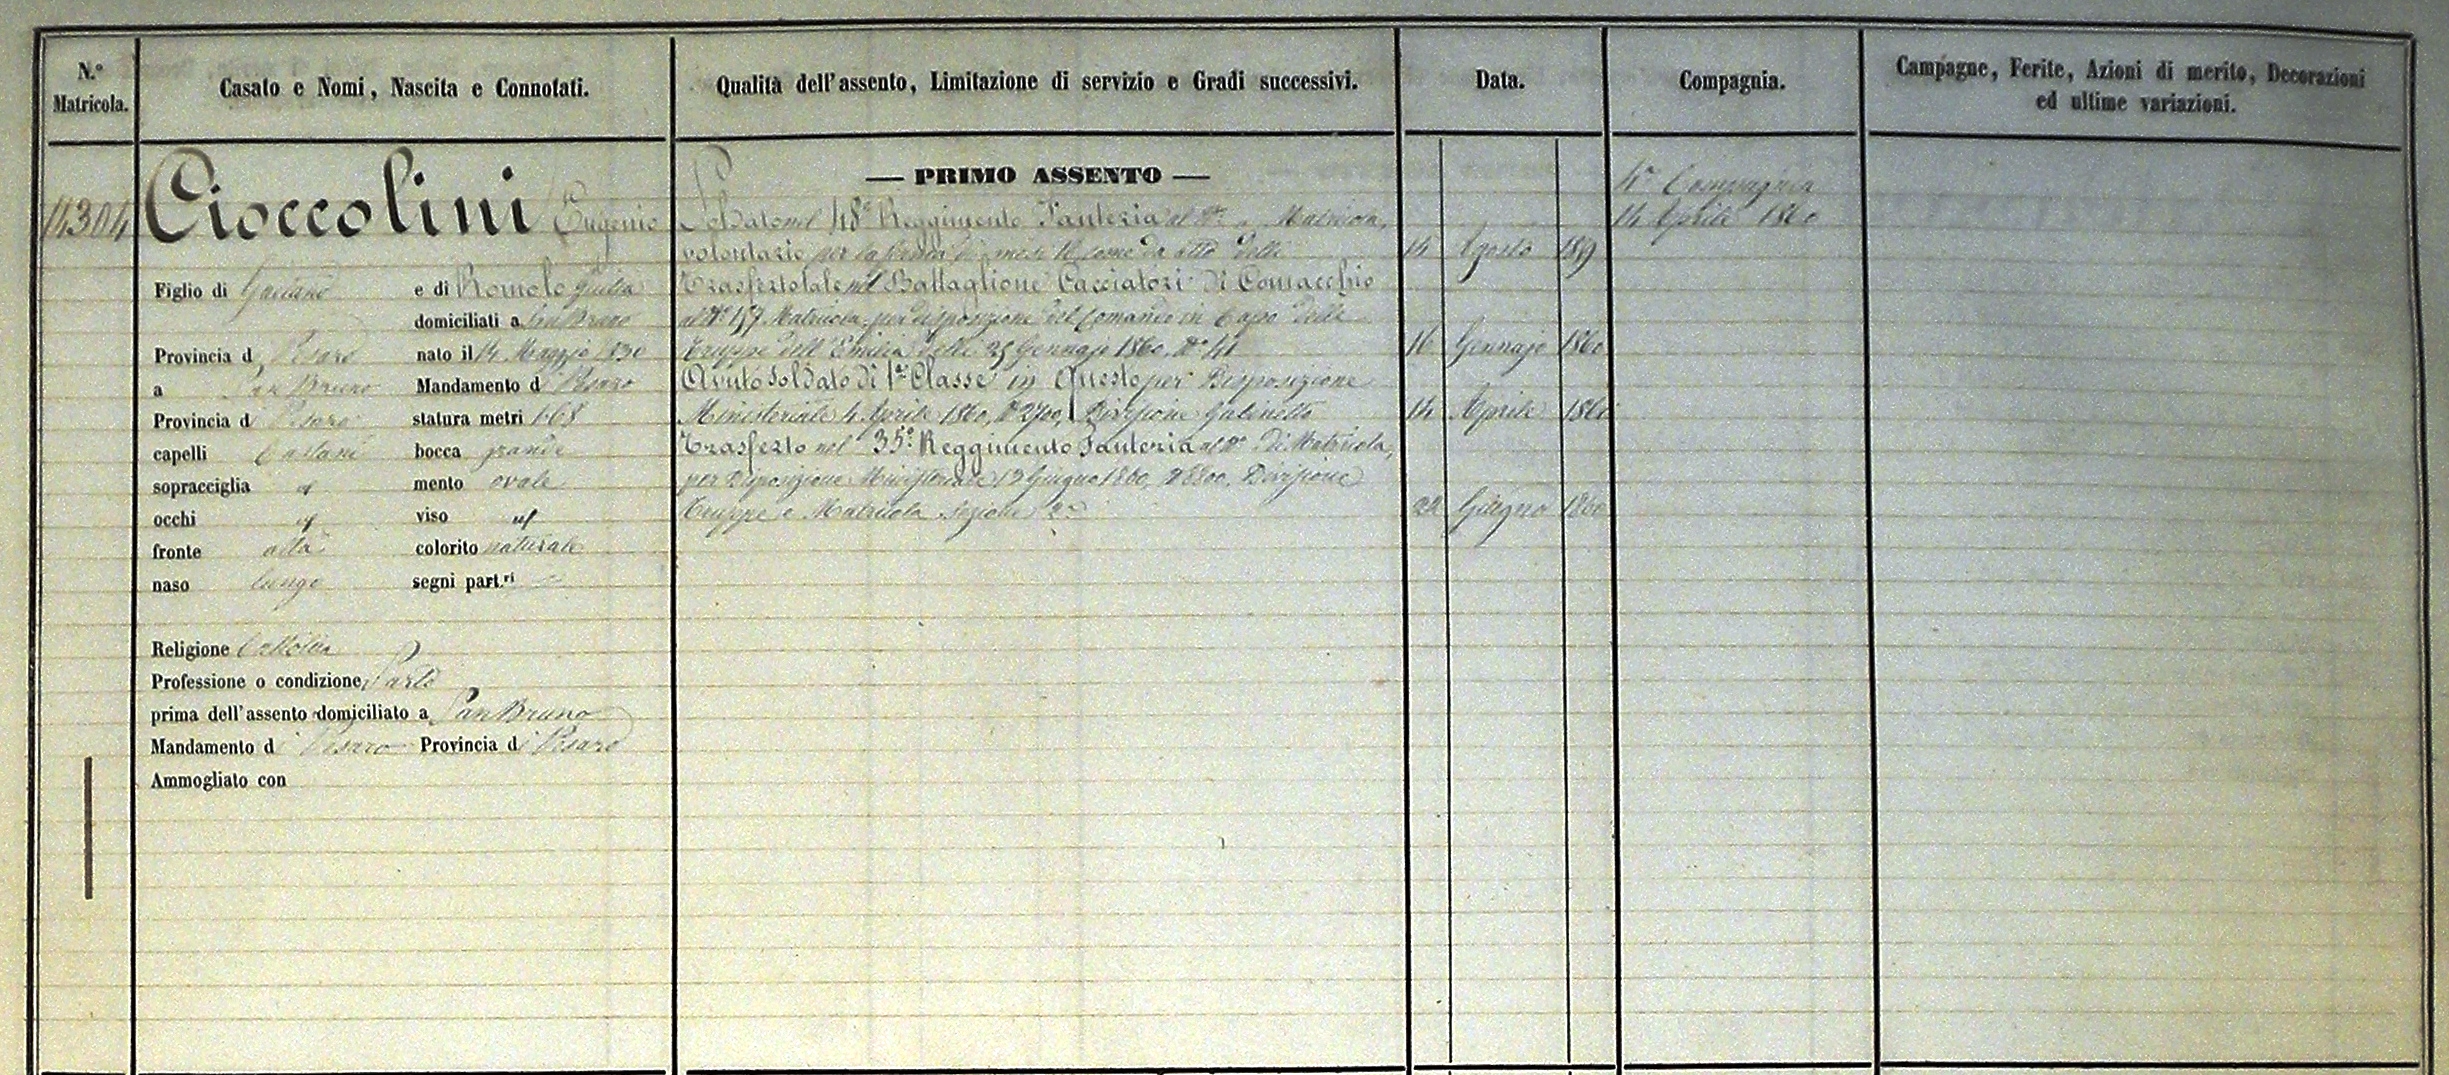 N.º Matricola.
Casato e Nomi, Nascita e Connotati.
Qualità dell'assento, Limitazione di servizio e Gradi successivi.
Data.
Compagnia.
Campagne, Ferite, Azioni di merito, Decorazioni
ed ultime variazioni.
14304
Cioccolini Eugenio
Figlio di Gaetano e di Romolo Giulia
domiciliati a San Bruno
Provincia di Pesaro nato il 14 Maggio 1830
a San Bruno Mandamento di Pesaro
Provincia di Pesaro statura metri 1.68
capelli Castani bocca grande
sopracciglia id mento ovale
occhi id viso id
fronte alta colorito naturale
naso lungo segni part.ri
Religione Cattolica
Professione o condizione Sarto
prima dell'assento domiciliato a San Bruno
Mandamento di Pesaro Provincia di Pesaro
Ammogliato con
— PRIMO ASSENTO —
Soldato nel 48º Reggimento Fanteria al Nº Matricola,
volontario per la ferma di mesi 18 come da atto delli 14 Agosto 1859
Trasferto tale nel Battaglione Cacciatori di Comacchio
al Nº 157 Matricola per disposizione del Comando in Capo delle
Truppe dell'Emilia delli 25 Gennajo 1860, Nº 41 16 Gennajo 1860
Avuto Soldato di 1ª Classe in questo per Disposizione
Ministeriale 4 Aprile 1860, Nº 2700, Divisione Gabinetto 14 Aprile 1860
Trasferto nel 35º Reggimento Fanteria al Nº di Matricola,
per Disposizione Ministeriale 19 Giugno 1860, Nº 8800, Divisione
Truppe e Matricola Sezione 2ª 22 Giugno 1860
4ª Compagnia
14 Aprile 1860